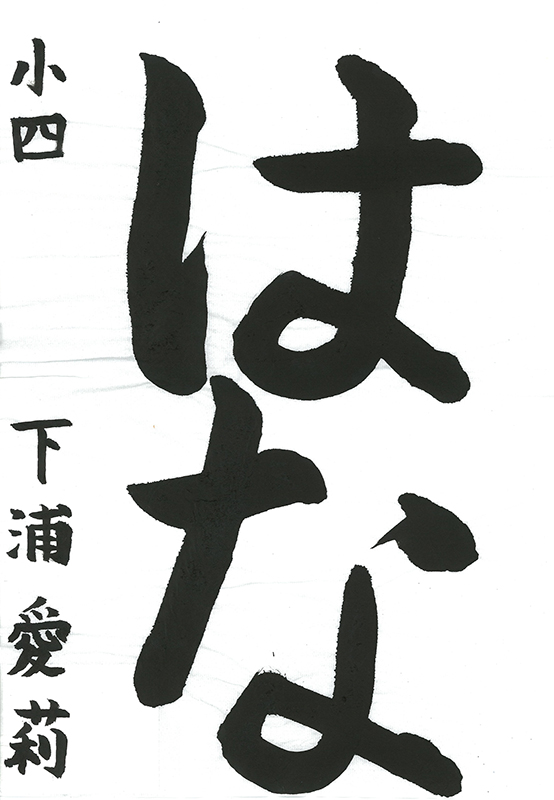 はな
小四 下浦愛莉